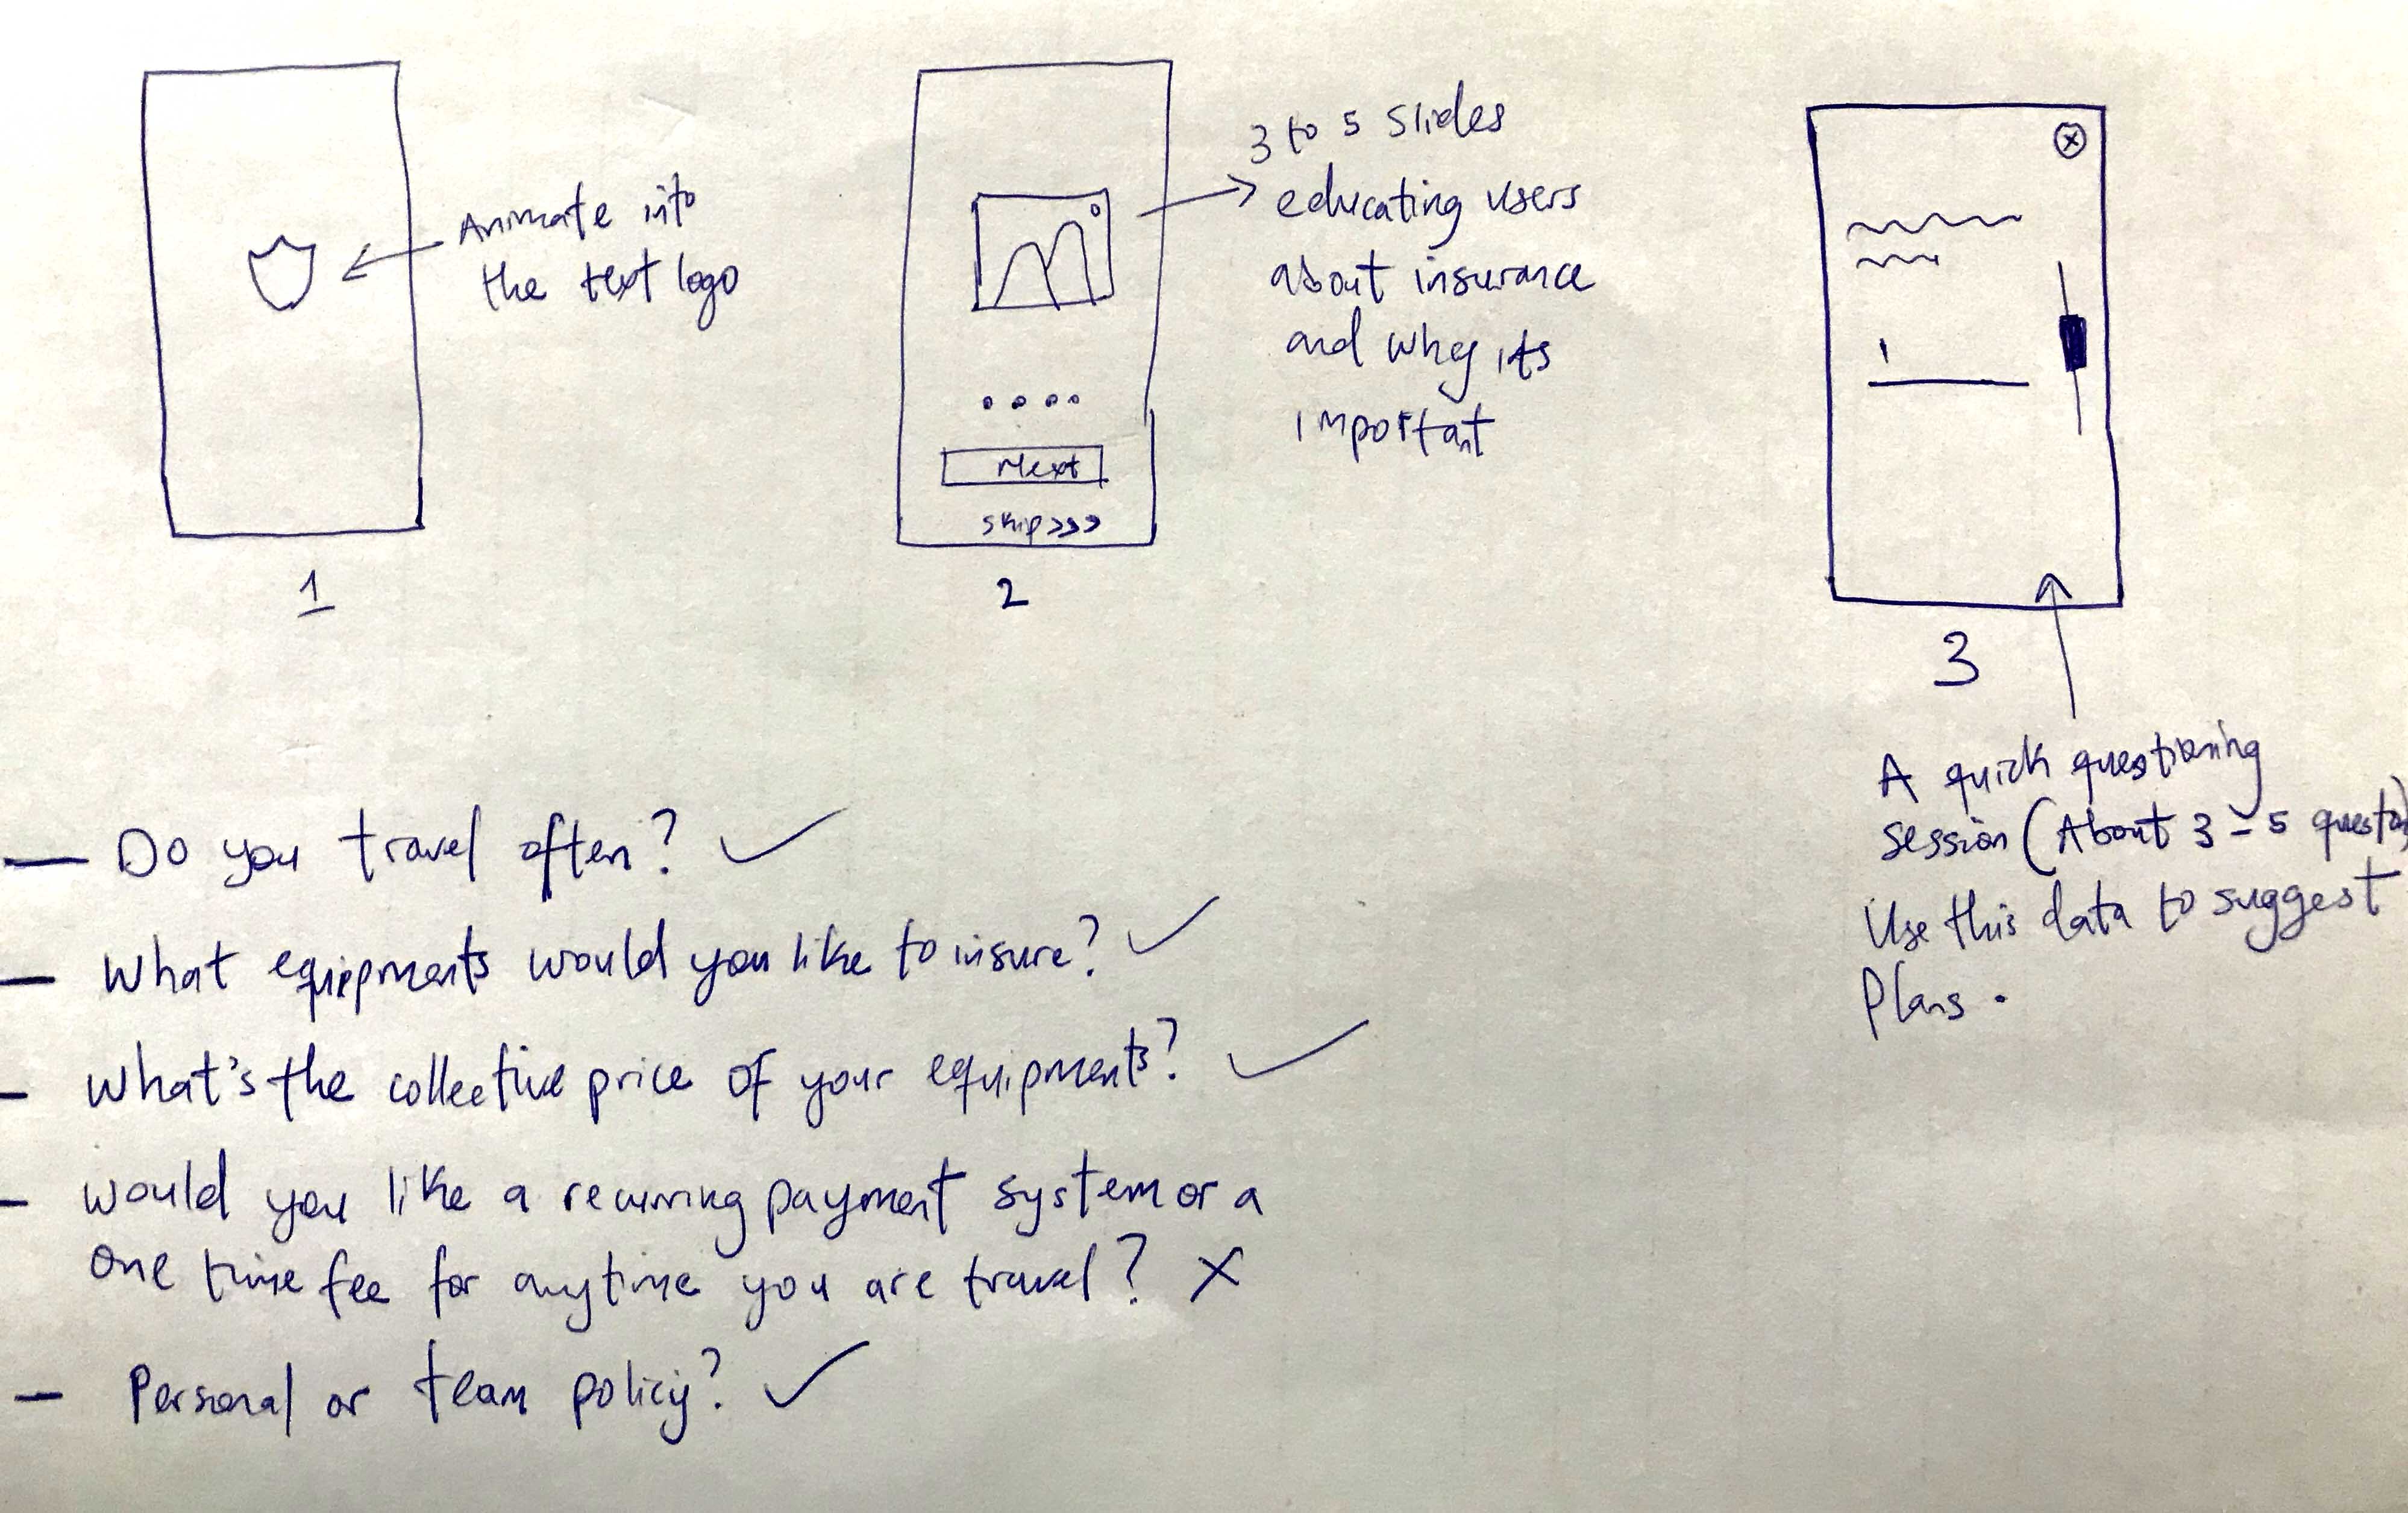 Animate into
the text logo
1
3 to 5 slides
educating users
about insurance
and why its
important
Next
skip>>>
2
3
A quick questioning
session (About 3-5
Use this data to suggest
Plans.
— Do you travel often? ✓
— What equipments would you like to insure? ✓
- What's the collective price of your equipments? ✓
- would you like a recurring payment system or a
one time fee for anytime you are travel? X
— Personal or team policy? ✓